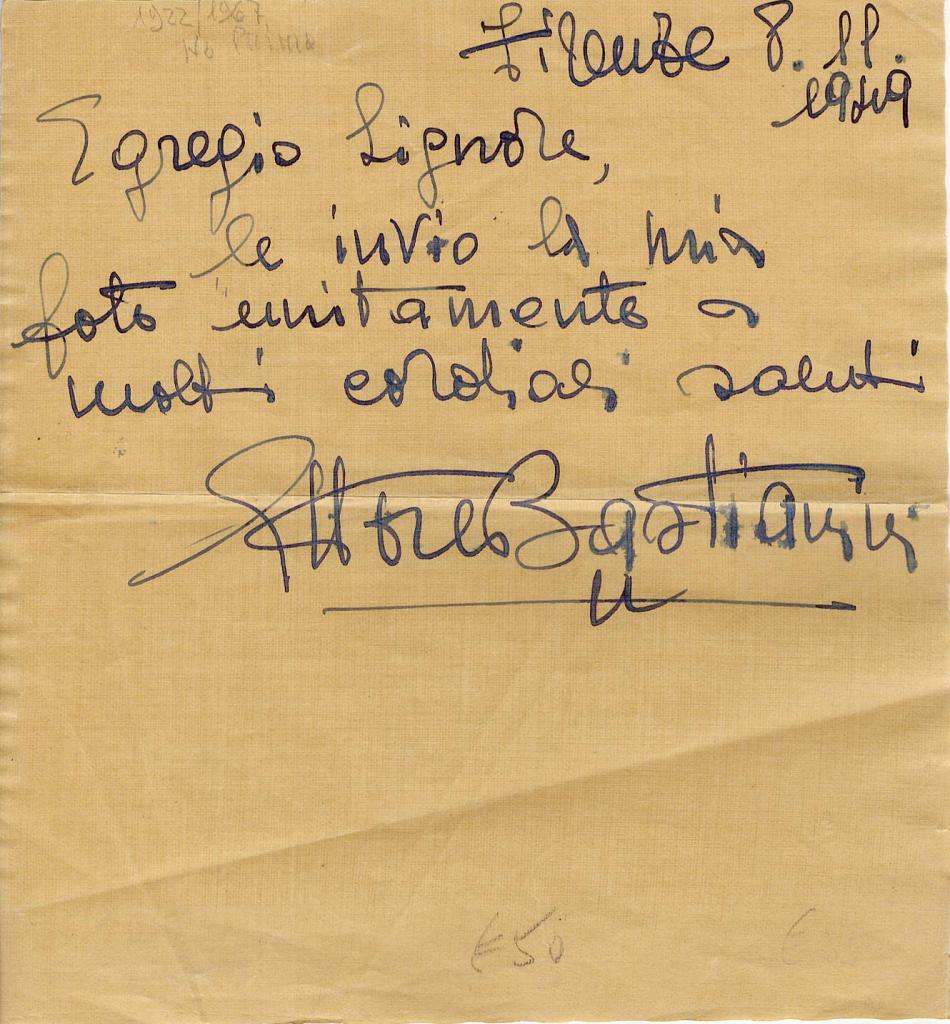 1922/1967
Firenze 8. 11.
1949
Egregio Signore,
le invio la mia
foto unitamente a
molti cordiali saluti
Ettore Bastianini
€50